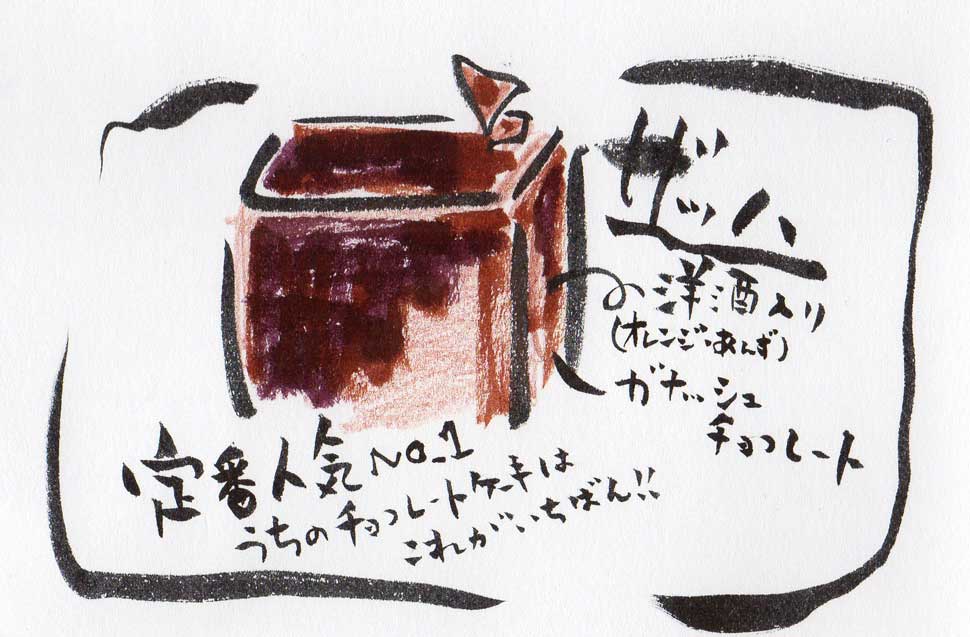 ザッハ
洋酒入り
(オレンジ・あんず)
ガナッシュ
チョコレート
定番人気No.1
うちのチョコレートケーキは
これがいちばん!!